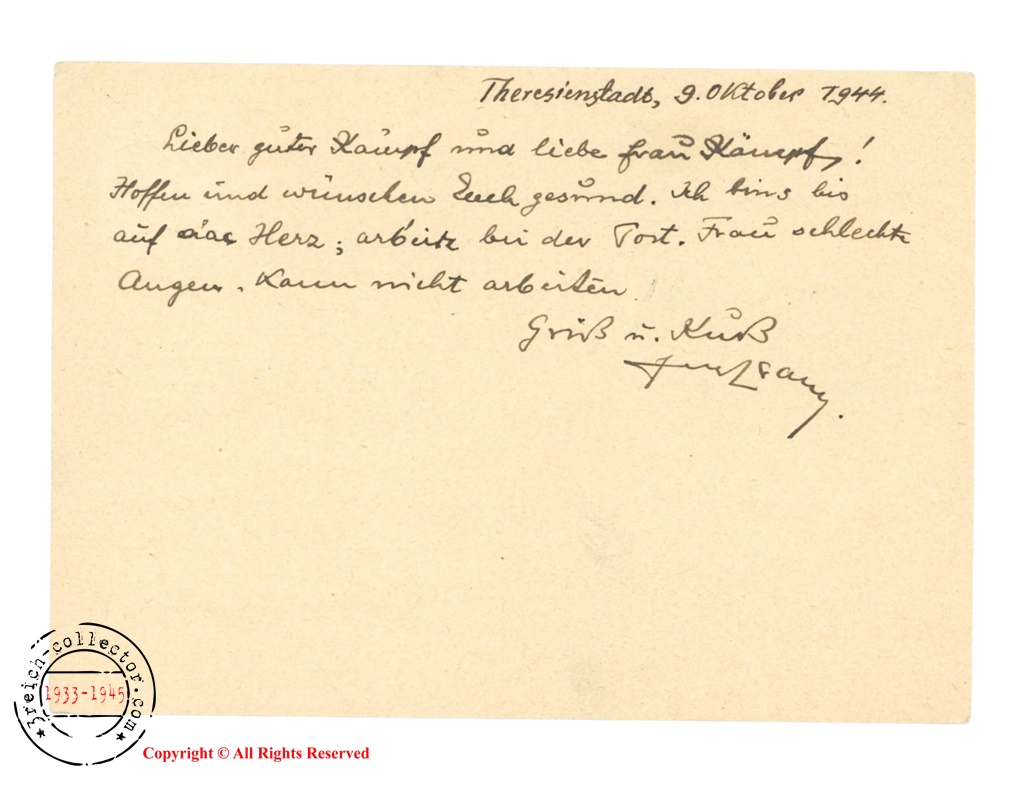 Theresienstadt, 9. Oktober 1944.
Lieber guter Kämpf und liebe Frau Kämpf!
Hoffen und wünschen Euch gesund. Ich bins bis
auf das Herz; arbeite bei der Post. Frau schlechte
Augen. Kann nicht arbeiten
Gruß u. Kuß
3reich-collector.com
1933-1945
Copyright © All Rights Reserved